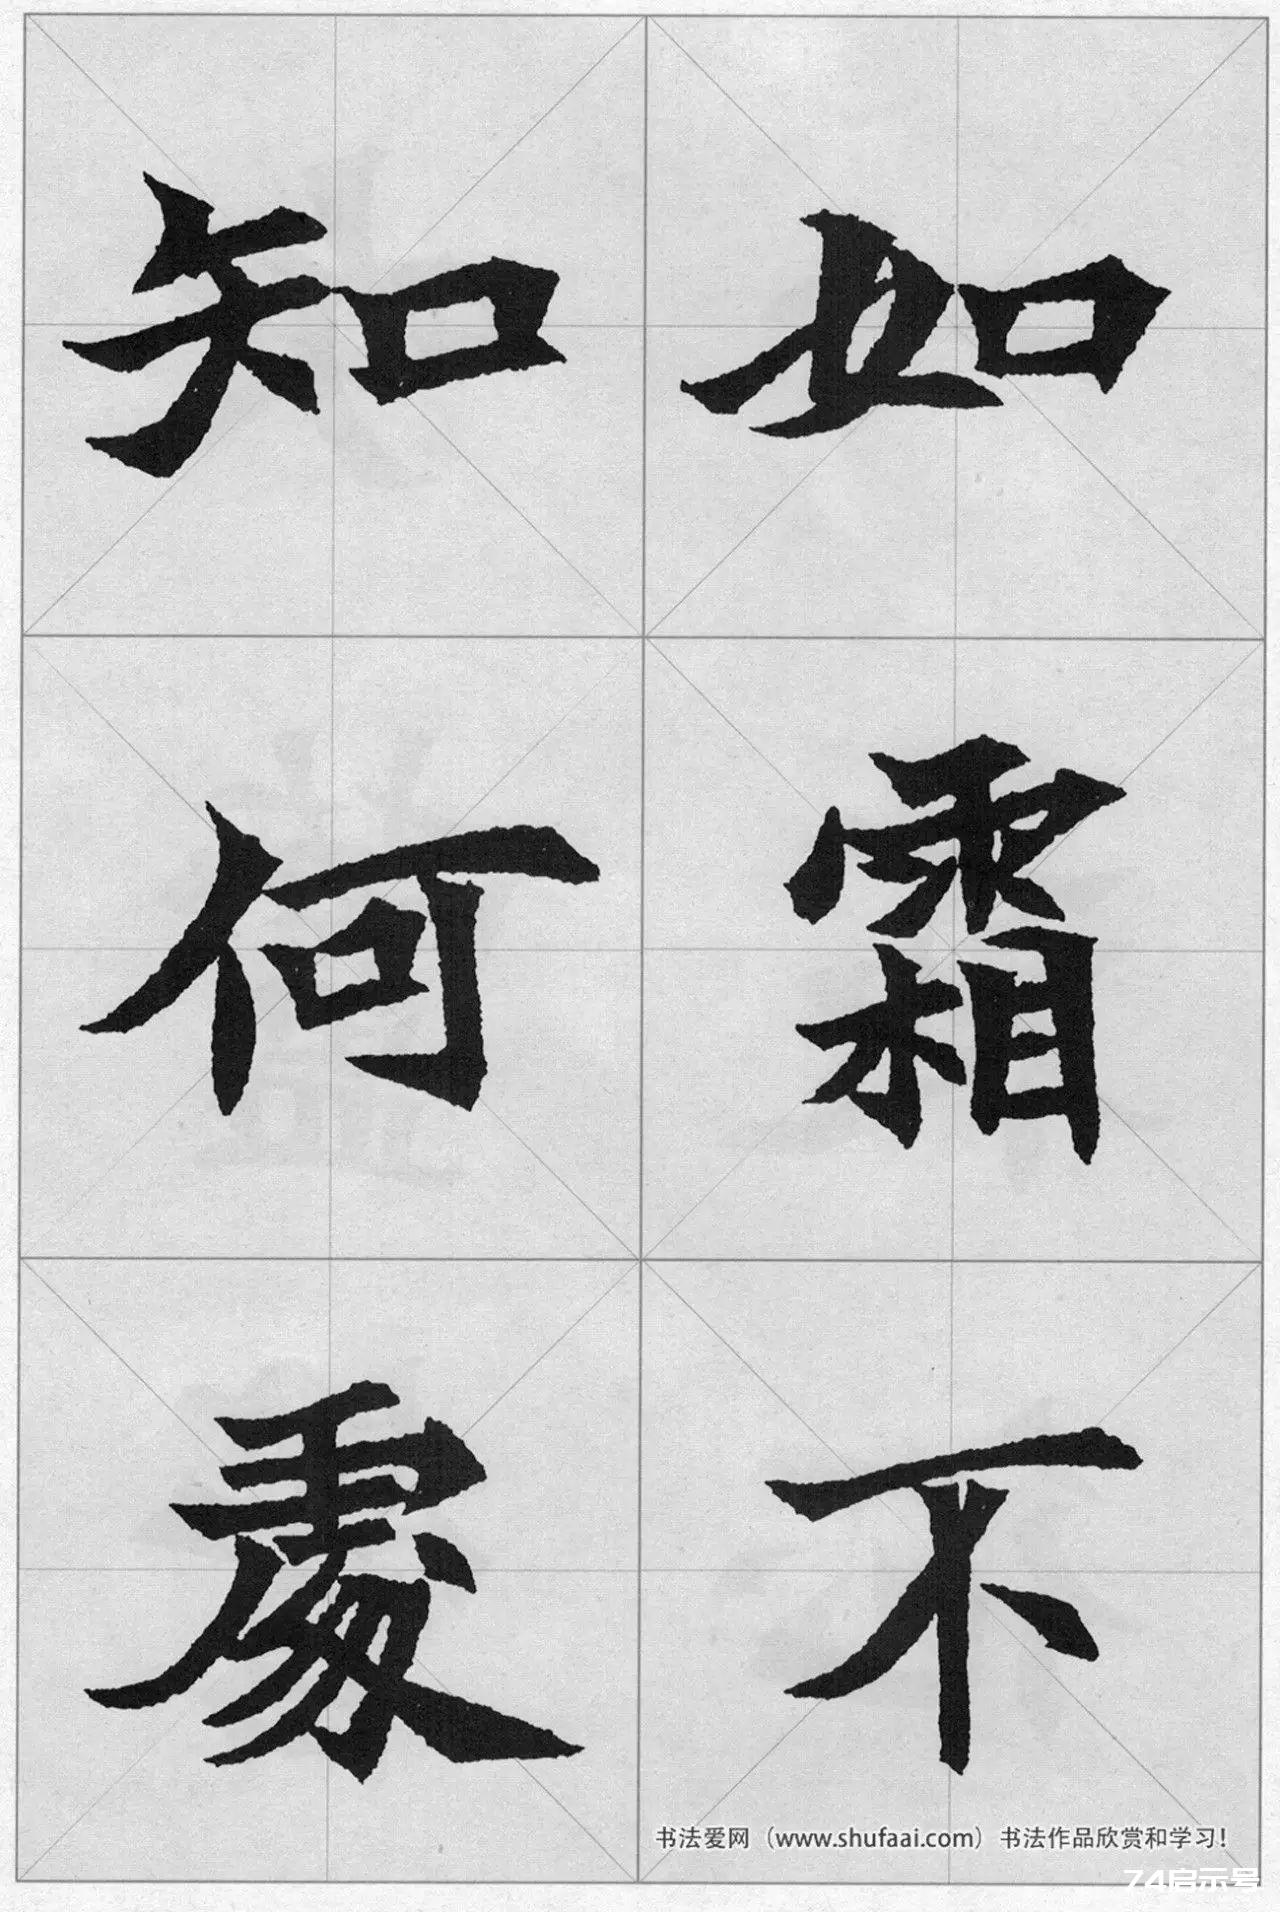 如霜不
知何處
书法爱网（www.shufaai.com）书法作品欣赏和学习！
74启示号